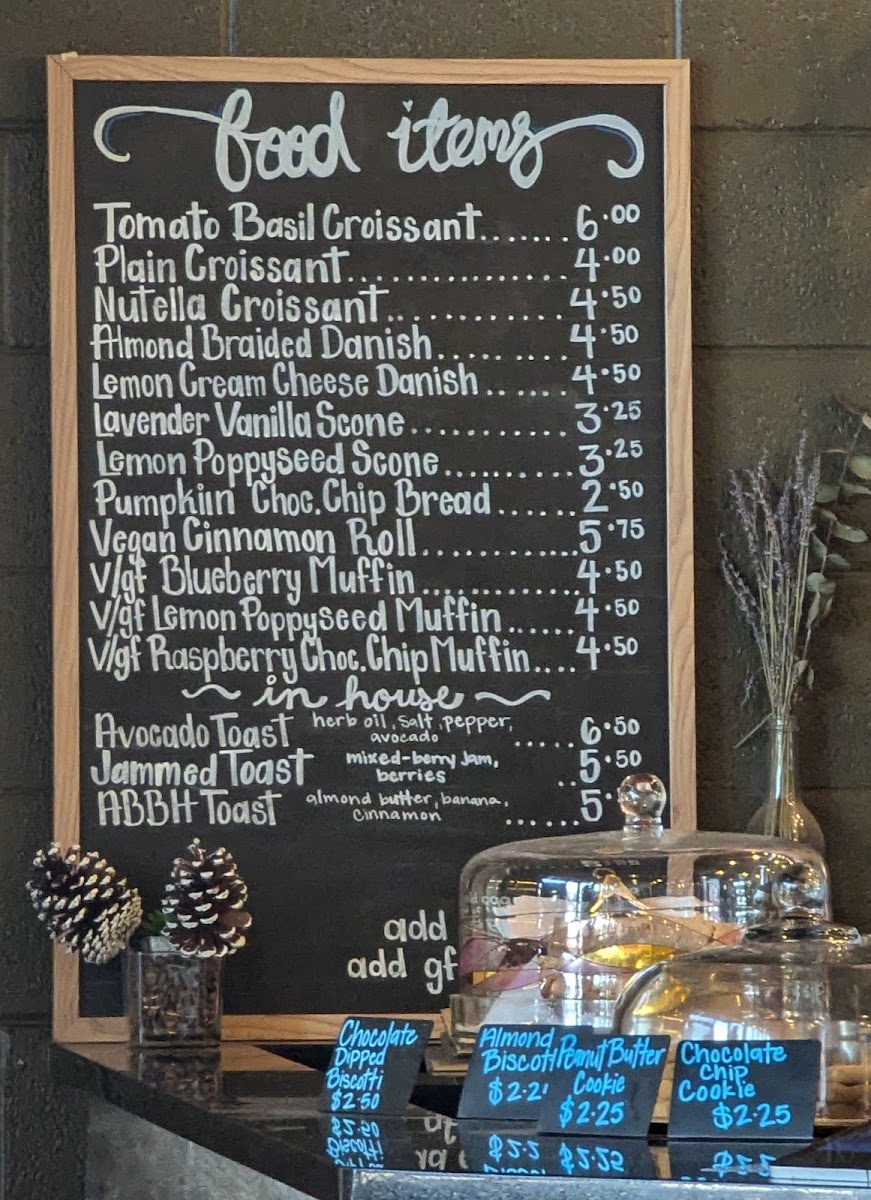 food items
Tomato Basil Croissant.......6.00
Plain Croissant..............4.00
Nutella Croissant............4.50
Almond Braided Danish.........4.50
Lemon Cream Cheese Danish......4.50
Lavender Vanilla Scone...........3.25
Lemon Poppyseed Scone.........3.25
Pumpkiin Choc.Chip Bread......2.50
Vegan Cinnamon Roll............5.75
V/gf Blueberry Muffin............4.50
V/gf Lemon Poppyseed Muffin......4.50
V/gf Raspberry Choc.Chip Muffin....4.50
~ in house ~
Avocado Toast herb oil, salt, pepper, avocado .....6.50
Jammed Toast mixed-berry jam, berries ..5.50
ABBH Toast almond butter, banana, cinnamon .......5.
add
add gf
Chocolate
Dipped
Biscotti
$2.50
Almond
Biscotti
$2.2
Peanut Butter
Cookie
$2.25
Chocolate
Chip
Cookie
$2.25